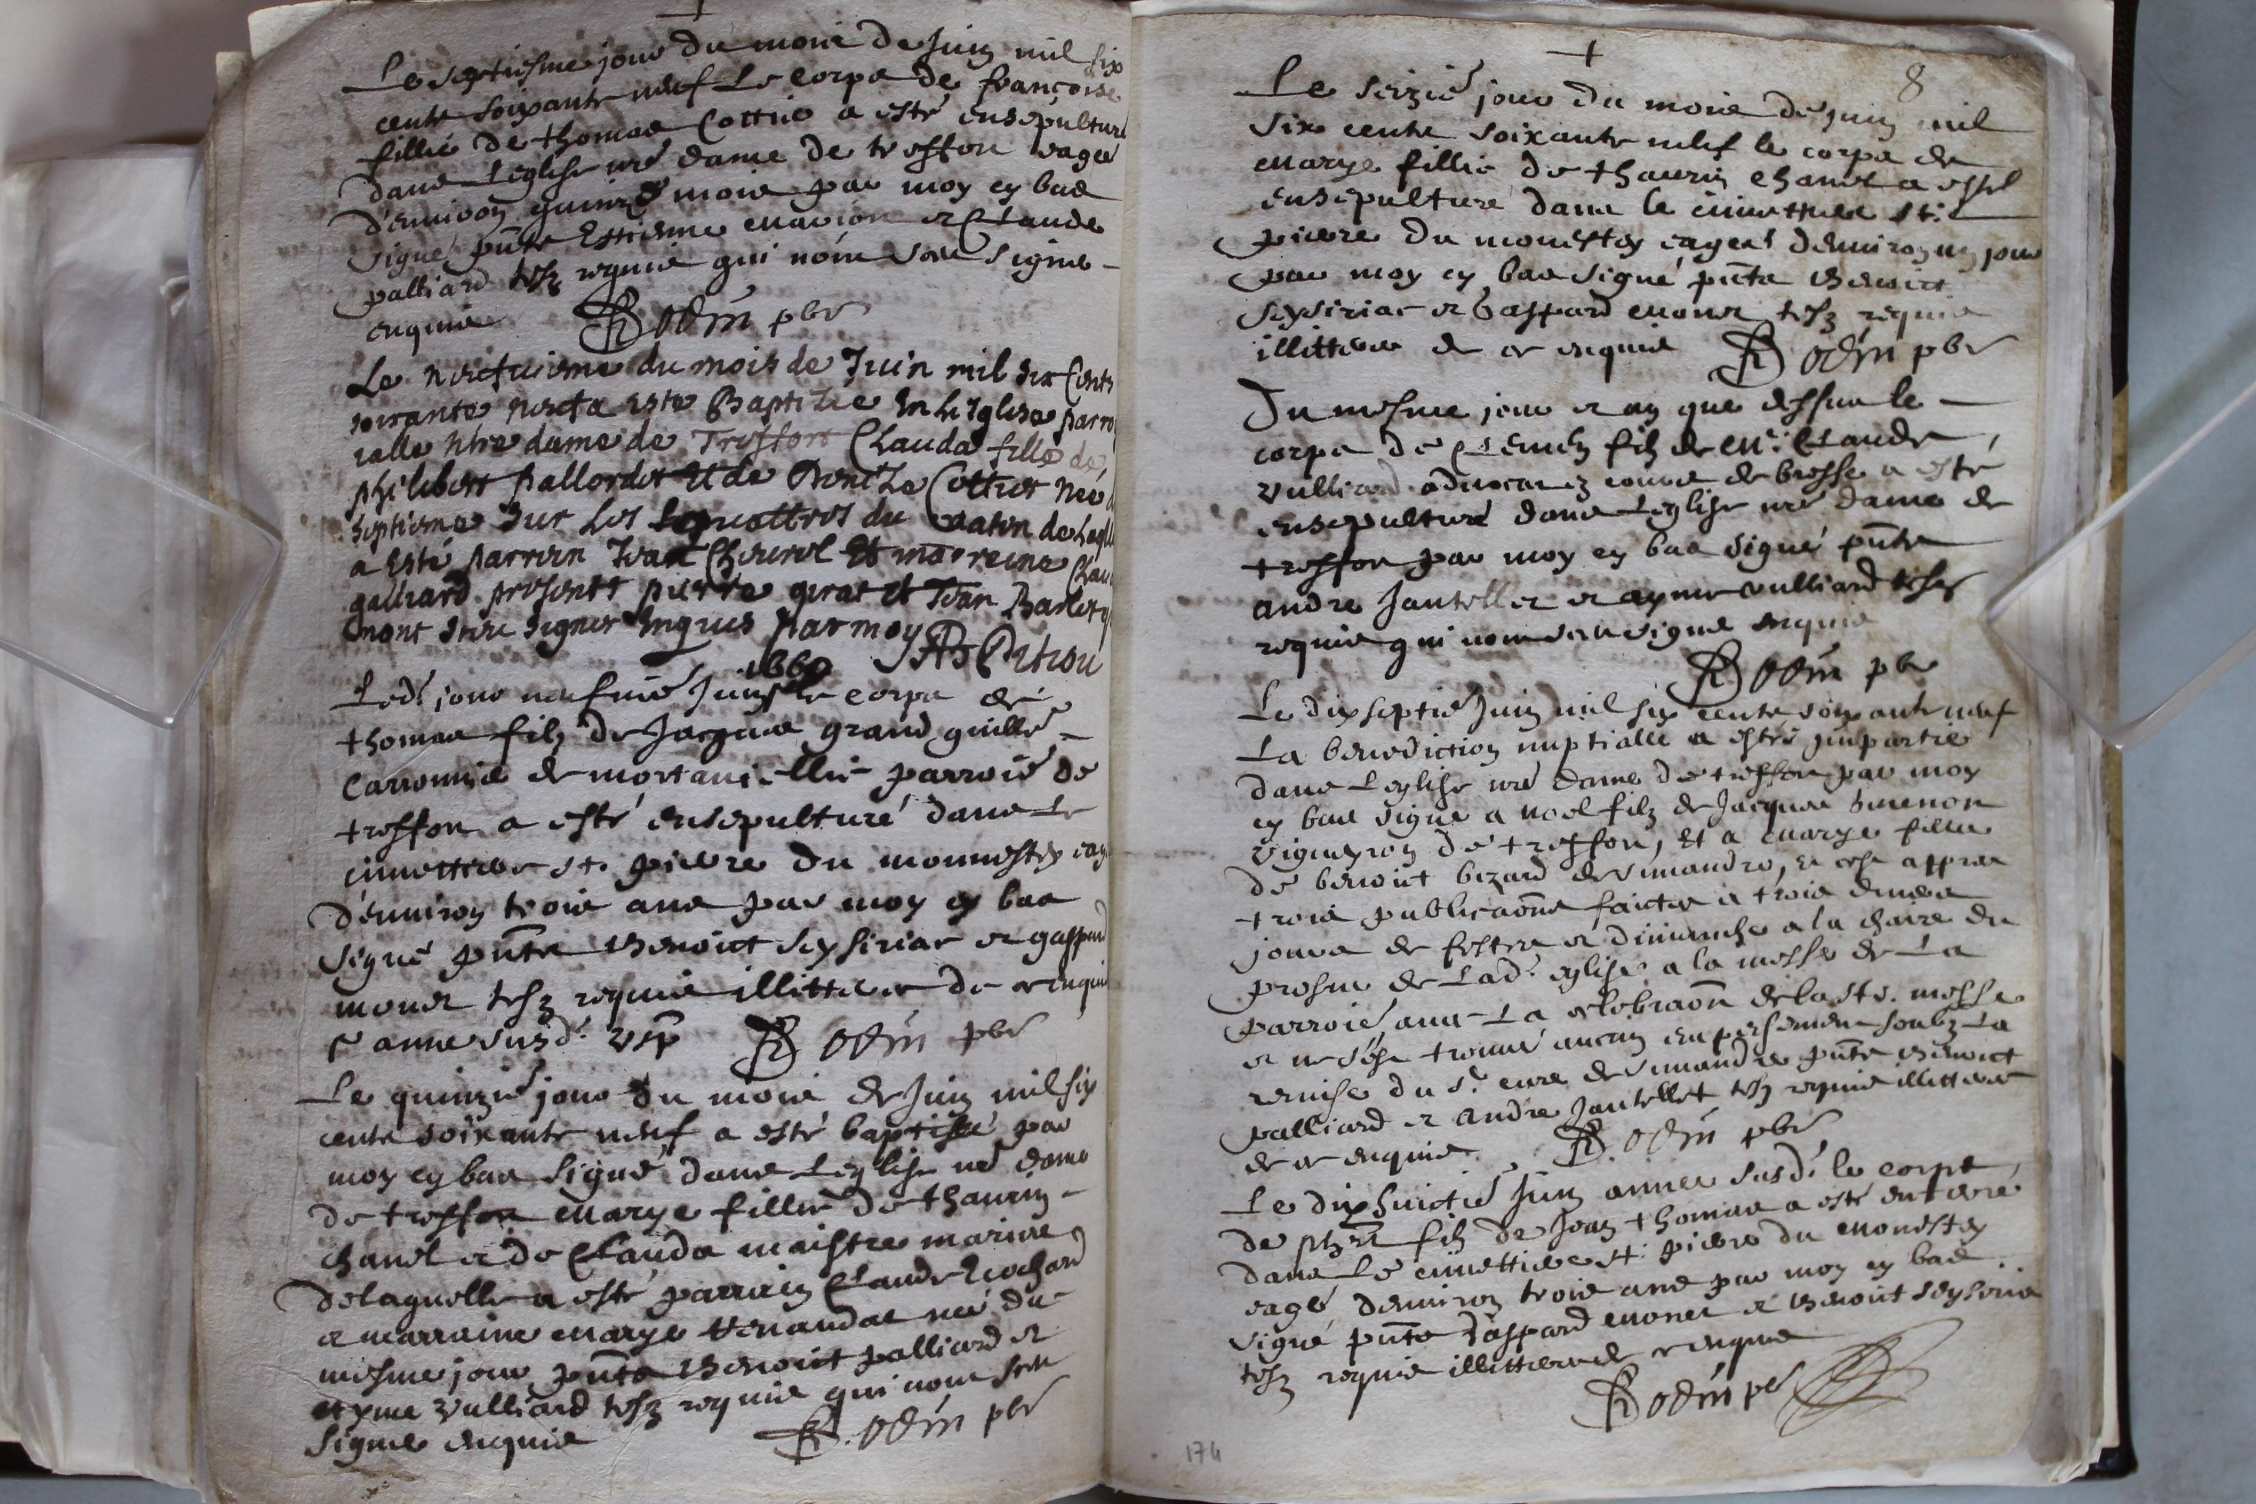 Le septiesme jour du mois de Juin mil six
cents soixante neuf Le Corps de françoise
fillie de thomas Cottier a esté ensépulturé
dans Leglise nre dame de treffort eagée
d'environ quinze mois par moy cy bas
signé pnts Estienne marion et Claude
palliard tesz requis qui nont sceu signer
enquis Rodin pbre
Le neufuiesme du mois de Juin mil six Cents
soixante neuf a este Baptizée En L'Eglise parro
ialle nre dame de Treffort Clauda fille de
philibert pallordet Et de Cottier née
septiesme sur les quattres du matin
a Esté parrein Jean Et marreine Clau
galliard presents pierre girat et Jean
nont sceu signer Enquis par moy
1669
Led. jour neufuie Juin le corps de
thomas filz de Jacques grand guille
Carronnie de parroie de
treffort a esté ensepulturé dans Le
cimettiere St. pierre du monnestey eagé
d'environ trois ans par moy cy bas
signé pnts Benoict seysiriac et gaspard
monet tesz requis illitteres de ce enquis
annee susd.
Rodin pbre
Le quinzie jour du mois de Juin mil six
cents soixante neuf a esté baptisée par
moy cy bas signé dans Leglise nre dame
de treffort marye fillie de thaurin
chanel et de Clauda maistre mariés
de laquelle a esté parrein Claude
et marraine marye née du
mesme jour pnts Benoict palliard et
ayme vulliard tesz requis qui nont sceu
signer enquis Rodin pbr
+
8
Le seizie jour du mois de Juin mil
six cents soixante neuf le corps de
marye fillie de thaurin chanel a esté
ensepulturé dans le cimettiere St.
pierre du monestey eagée d'environ un jour
par moy cy bas signé pnts Benoict
seysiriac et Gaspard monet tesz requis
illitteres de ce enquis Rodin pbr
Du mesme jour et an que dessus le
corps de Clement filz de Mr. Claude
vulliard advocat de bresse a esté
ensepulturé dans Leglise nre dame de
treffort par moy cy bas signé pnts
andre Jantellet et ayme vulliard tesz
requis qui nont sceu signer enquis
Rodin pbr
Le dixseptie Juin mil six cents soixante neuf
La benediction nuptialle a estée impartie
dans Leglise nre dame de treffort par moy
cy bas signé a noel filz de Jacques
vigneron de treffort, Et a marye fillie
de benoict bizard de simandre, et ce apprés
trois publicaons faictes a trois divers
jours de festes et dimanche a la chaire du
prosne de Lad. eglise a la messe de La
parroie, avec La celebraon de la ste. messe
et ne s'est trouvé aucun empeschement soubz La
remise du sr. cure de simandre pnts Benoict
palliard et andre Jantellet tesz requis illitteres
de ce enquis. Rodin pbr
Le dixhuictie Juin annee susd. le corps
de filz de Jean thomas a esté enterré
dans Le cimettiere st. pierre du monestey
eagé d'environ trois ans par moy cy bas
signé pnts Gaspard monet et Benoict seysiria
tesz requis illitteres de ce enquis
Rodin pbr
174